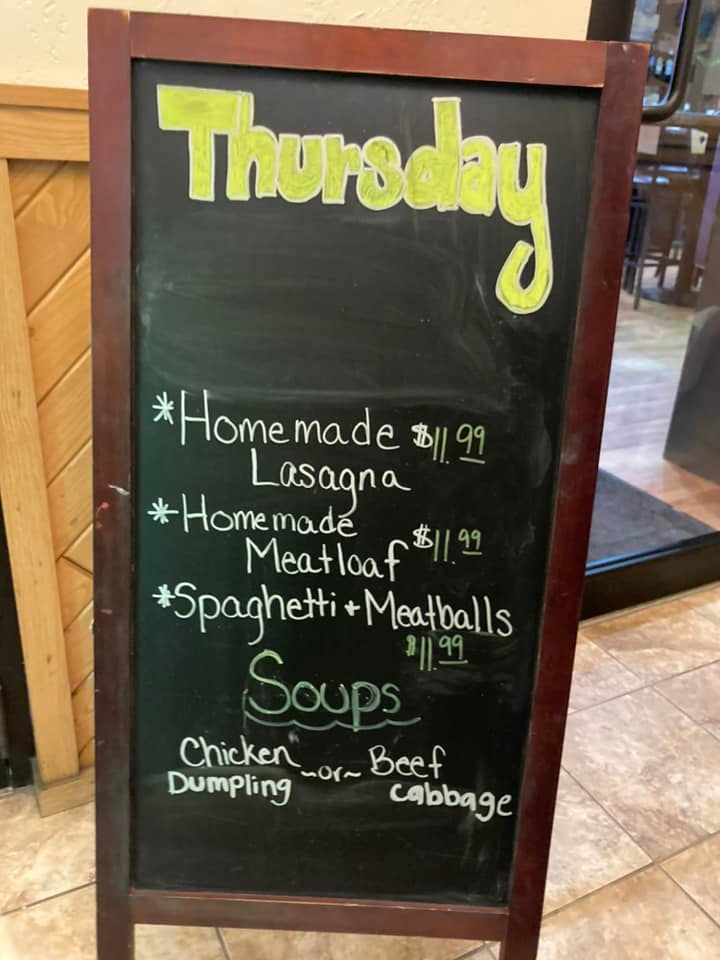 Thursday
*Homemade $11.99
Lasagna
*Homemade
Meatloaf $11.99
*Spaghetti + Meatballs
$11.99
Soups
Chicken ~or~ Beef
Dumpling cabbage